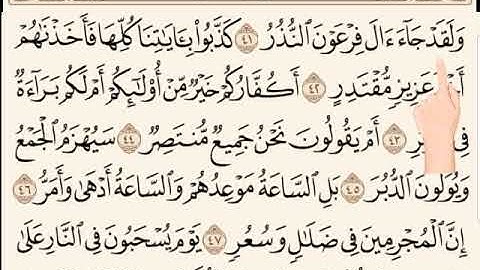 وَلَقَدْ جَآءَ ءَالَ فِرْعَوْنَ ٱلنُّذُرُ ٤١ كَذَّبُوا۟ بِـَٔايَٰتِنَا كُلِّهَا فَأَخَذْنَٰهُمْ
عَزِيزٍ مُّقْتَدِرٍ ٤٢ أَكُفَّارُكُمْ خَيْرٌ مِّنْ أُو۟لَٰٓئِكُمْ أَمْ لَكُم بَرَآءَةٌ
فِى ٤٣ أَمْ يَقُولُونَ نَحْنُ جَمِيعٌ مُّنتَصِرٌ ٤٤ سَيُهْزَمُ ٱلْجَمْعُ
وَيُوَلُّونَ ٱلدُّبُرَ ٤٥ بَلِ ٱلسَّاعَةُ مَوْعِدُهُمْ وَٱلسَّاعَةُ أَدْهَىٰ وَأَمَرُّ ٤٦
إِنَّ ٱلْمُجْرِمِينَ فِى ضَلَٰلٍ وَسُعُرٍ ٤٧ يَوْمَ يُسْحَبُونَ فِى ٱلنَّارِ عَلَىٰ